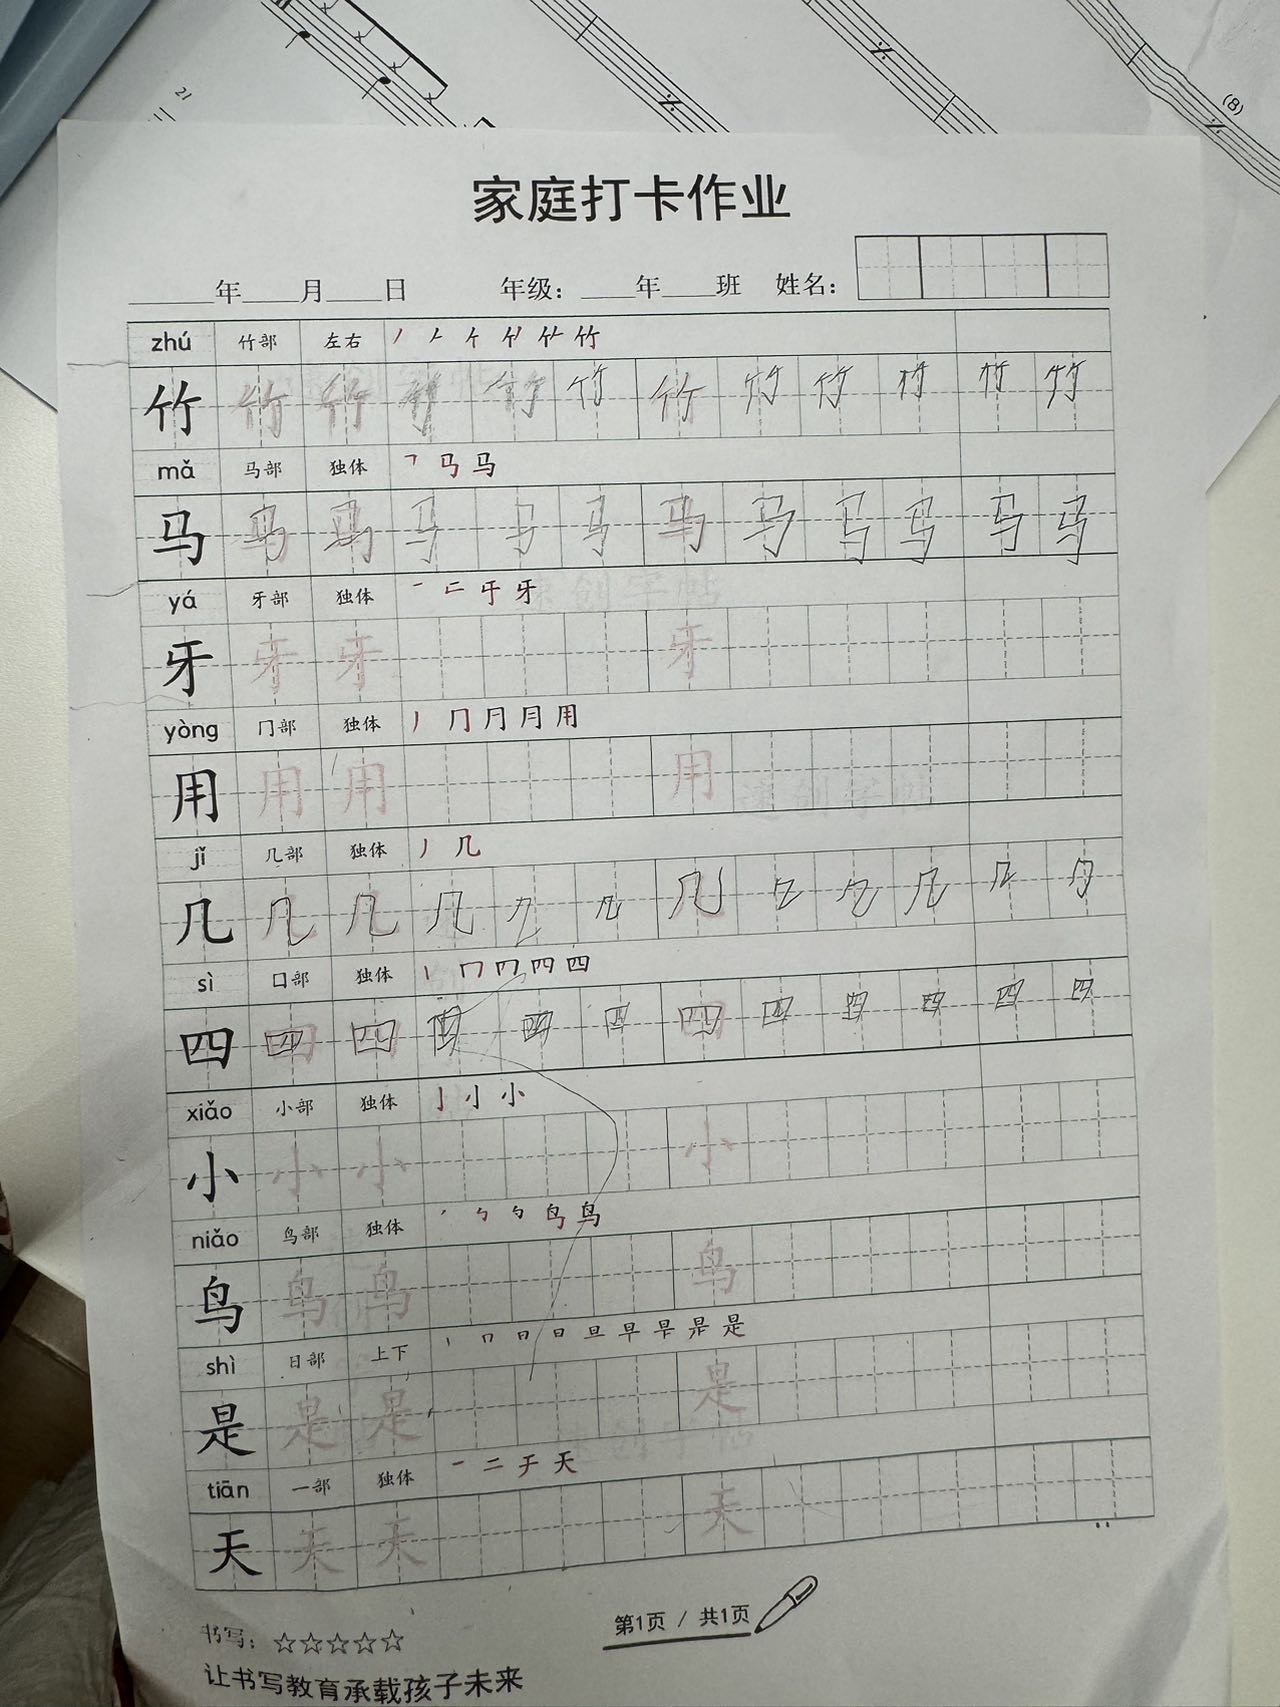 21
(8)
家庭打卡作业
______年____月____日 年级：____年____班 姓名：
zhú 竹部 左右 丿 𠂉 亇 竹
竹 竹 竹 竹 竹 竹 竹 竹 竹 竹 竹 竹
mǎ 马部 独体 ㇕ 马
马 马 马 马 马 马 马 马 马 马 马 马
yá 牙部 独体 一 牙
牙 牙 牙 牙
yòng 冂部 独体 丿 冂 月 月 用
用 用 用 用
jǐ 几部 独体 丿 几
几 几 几 几 几 几 几 几 几 几 几 几
sì 口部 独体 丨 冂 四 四
四 四 四 四 四 四 四 四 四 四 四 四
xiǎo 小部 独体 亅 小 小
小 小 小 小
niǎo 鸟部 独体 鸟
鸟 鸟 鸟 鸟
shì 日部 上下 丨 冂 日 日 旦 早 是
是 是 是 是
tiān 一部 独体 一 二 于 天
天 天 天 天
书写：☆☆☆☆☆
第1页 / 共1页
让书写教育承载孩子未来